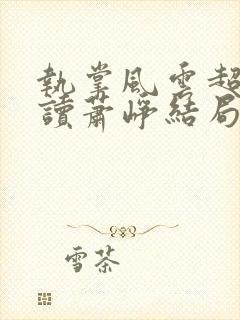 執掌風雲超
讀蕭崢結局
雪茶